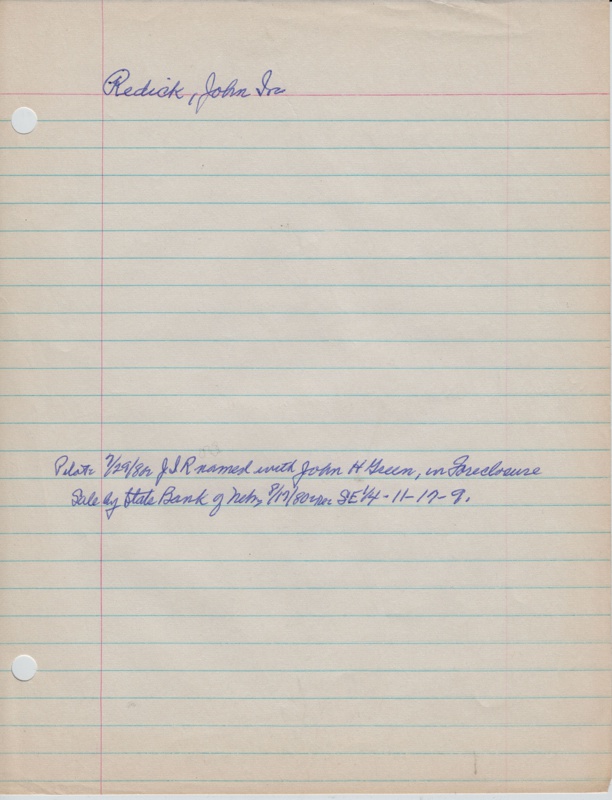 Redick, John Ira
Pilot: 7/29/80, J I R named with John H Green, in Foreclosure
Sale by State Bank of Neb, 8/17/80 SE 1/4 - 11-17-9.